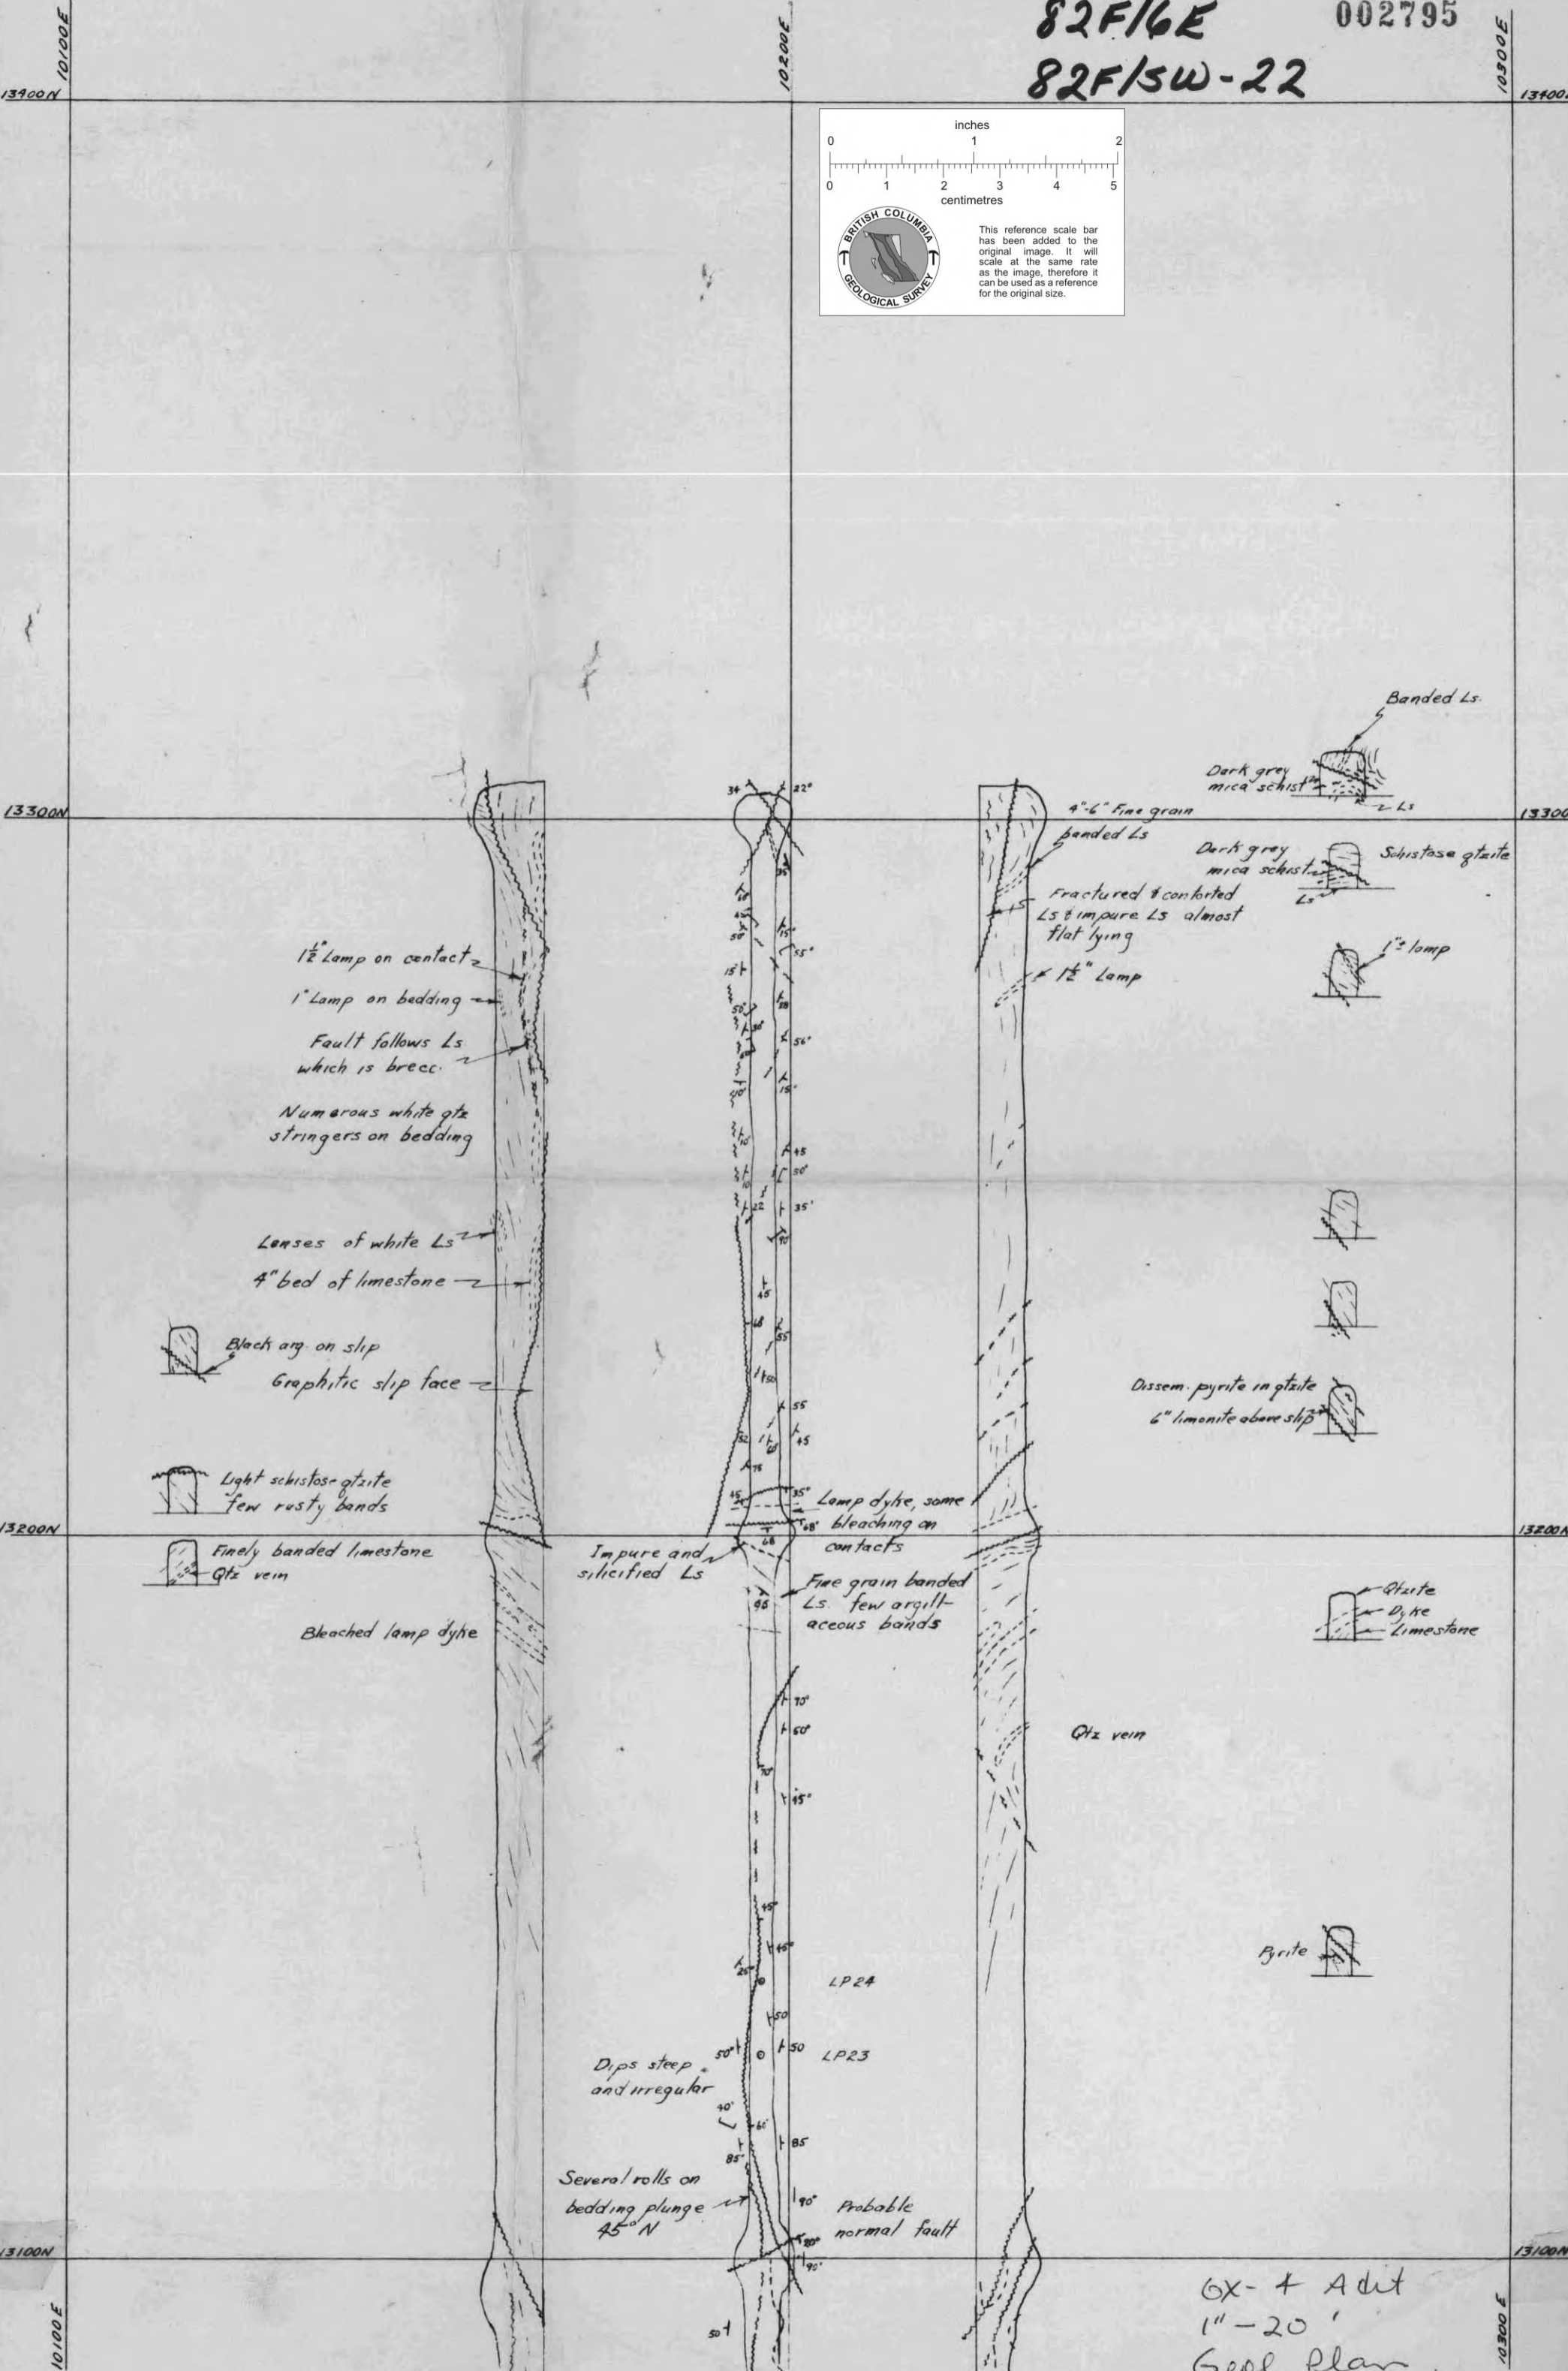 82F/6E
002795
82F/SW-22
10100E
10200E
10300E
13400N
13400
inches
0 1 2
0 1 2 3 4 5
centimetres
BRITISH COLUMBIA
GEOLOGICAL SURVEY
This reference scale bar
has been added to the
original image. It will
scale at the same rate
as the image, therefore it
can be used as a reference
for the original size.
Banded Ls.
Dark grey
mica schist
Ls
13300N
34
22°
4"-6" Fine grain
banded Ls
13300
Dark grey
mica schist
Schistose qtzite
Ls
Fractured & contorted
Ls & impure Ls almost
flat lying
1½" Lamp on contact
1" Lamp on bedding
1½" Lamp
1"± lamp
Fault follows Ls
which is brecc.
Numerous white qtz
stringers on bedding
50°
15°
55°
56°
45
50°
22
35°
Lenses of white Ls
4" bed of limestone
45
68
55
Black arg. on slip
Graphitic slip face
50
55
52
45
Dissem. pyrite in qtzite
6" limonite above slip
Light schistose qtzite
few rusty bands
75
45
35°
Lamp dyke, some
bleaching on
contacts
68°
68
13200N
13200N
Finely banded limestone
Qtz vein
Impure and
silicified Ls
Fine grain banded
Ls. few argill-
aceous bands
Bleached lamp dyke
Qtzite
Dyke
Limestone
70°
50°
70°
45°
Qtz vein
45°
45°
25°
LP24
Pyrite
50
50°
50
LP23
Dips steep
and irregular
40°
60°
85
85°
Several rolls on
bedding plunge
45° N
90°
Probable
normal fault
90°
13100N
13100N
50
GX-4 Adit
1"-20'
Geol Plan
10100E
10300E